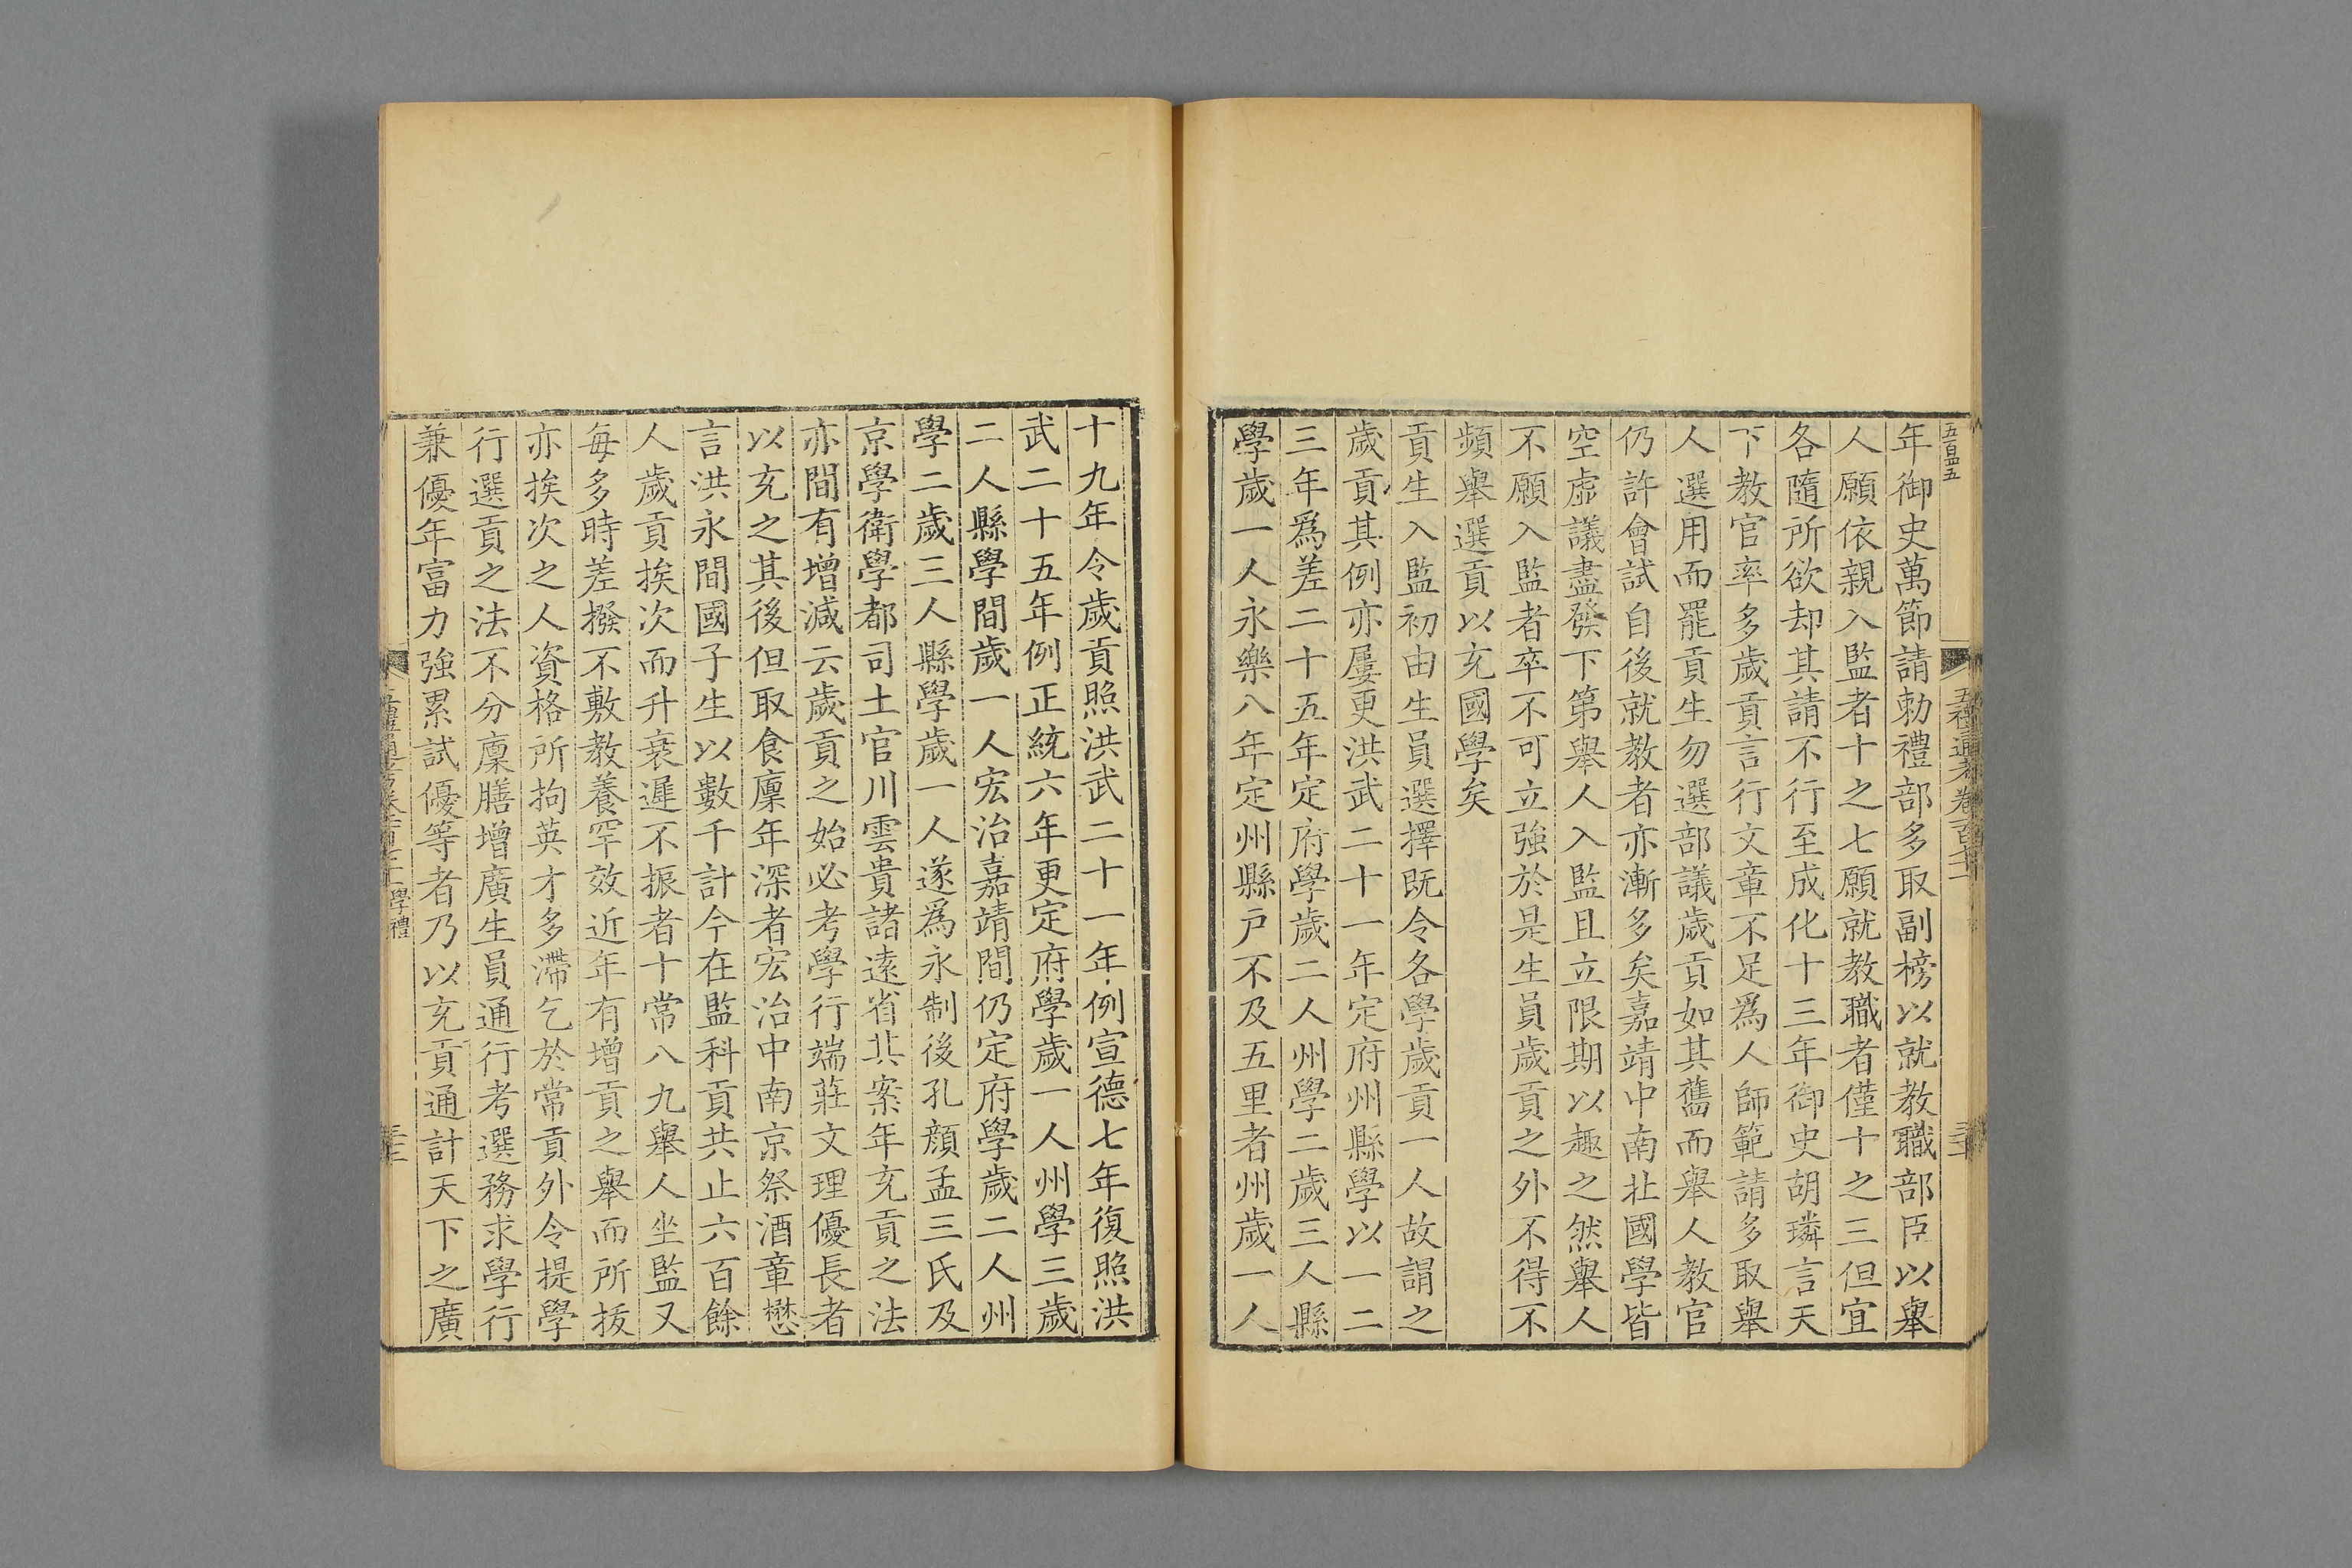 五百四五
五禮通考卷一百七十一
年御史萬節請勅禮部多取副榜以就教職部臣以舉
人願依親入監者十之七願就教職者僅十之三但宜
各隨所欲却其請不行至成化十三年御史胡璘言天
下教官率多歲貢言行文章不足爲人師範請多取舉
人選用而罷貢生勿選部議歲貢如其舊而舉人教官
仍許會試自後就教者亦漸多矣嘉靖中南北國學皆
空虛議盡發下第舉人入監且立限期以趣之然舉人
不願入監者卒不可立強於是生員歲貢之外不得不
頻舉選貢以充國學矣
貢生入監初由生員選擇既令各學歲貢一人故謂之
歲貢其例亦屢更洪武二十一年定府州縣學以一二
三年爲差二十五年定府學歲二人州學二歲三人縣
學歲一人永樂八年定州縣戶不及五里者州歲一人
十九年令歲貢照洪武二十一年例宣德七年復照洪
武二十五年例正統六年更定府學歲一人州學三歲
二人縣學間歲一人宏治嘉靖間仍定府學歲二人州
學二歲三人縣學歲一人遂爲永制後孔顏孟三氏及
京學衛學都司土官川雲貴諸遠省其案年充貢之法
亦間有增減云歲貢之始必考學行端莊文理優長者
以充之其後但取食廩年深者宏治中南京祭酒章懋
言洪永間國子生以數千計今在監科貢共止六百餘
人歲貢挨次而升衰遲不振者十常八九舉人坐監又
每多時差撥不敷教養罕效近年有增貢之舉而所拔
亦挨次之人資格所拘英才多滯乞於常貢外令提學
行選貢之法不分廩膳增廣生員通行考選務求學行
兼優年富力強累試優等者乃以充貢通計天下之廣
學禮